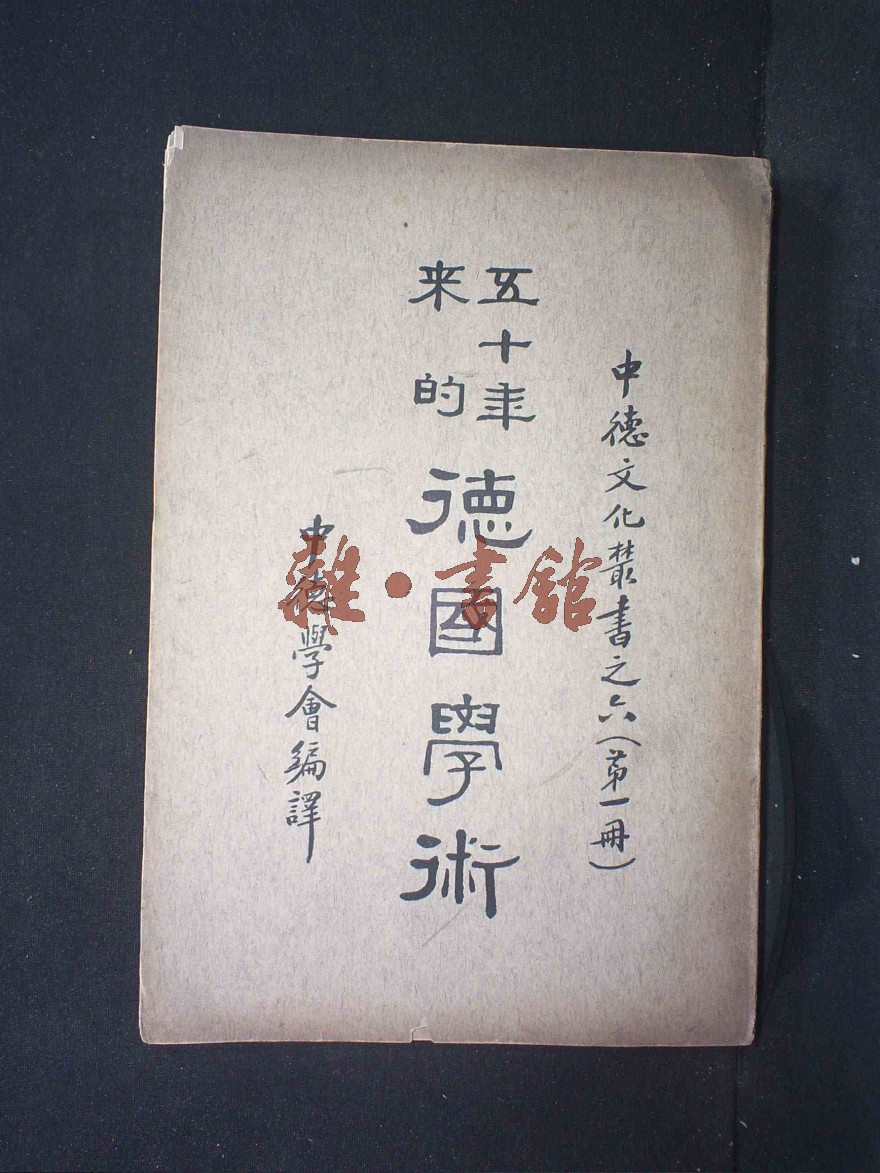 中德文化叢書之六（第一冊）
五十年
来的
德國學術
中德學會編譯
雜·書館